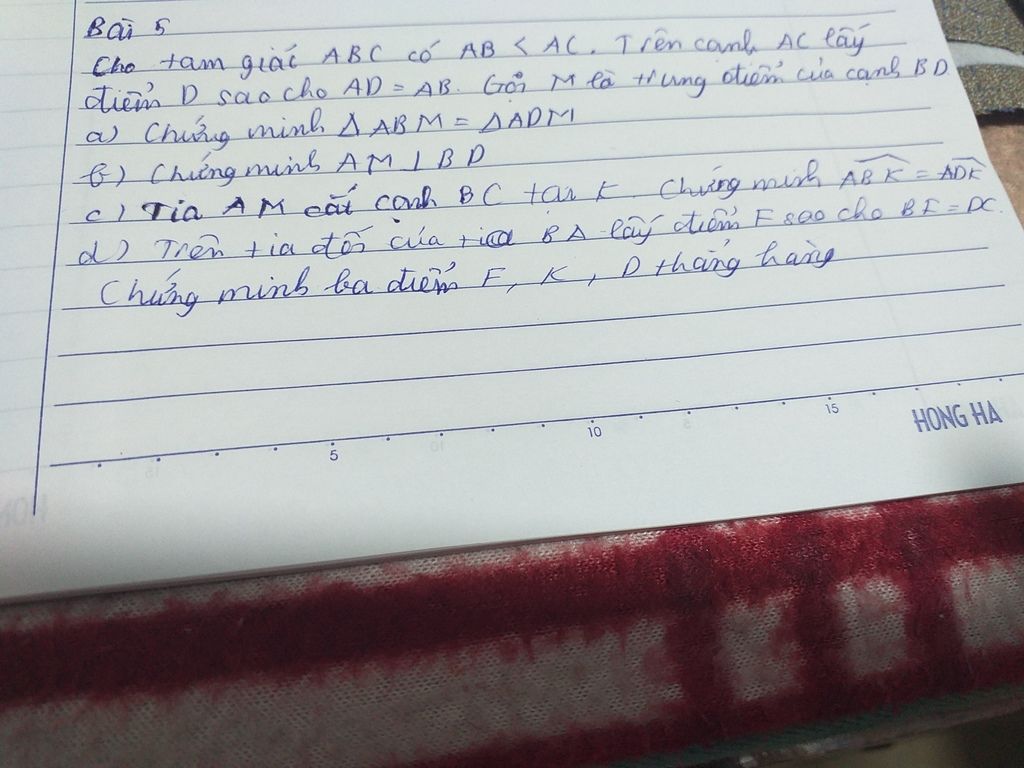 Bài 5
Cho tam giác ABC có AB < AC. Trên cạnh AC lấy
điểm D sao cho AD = AB. Gọi M là trung điểm của cạnh BD
a) Chứng minh Δ ABM = Δ ADM
b) Chứng minh AM ⊥ BD
c) Tia AM cắt cạnh BC tại K. Chứng minh \widehat{ABK} = \widehat{ADK}
d) Trên tia đối của tia BA lấy điểm F sao cho BF = DC.
Chứng minh ba điểm F, K, D thẳng hàng
5
10
15
HONG HA